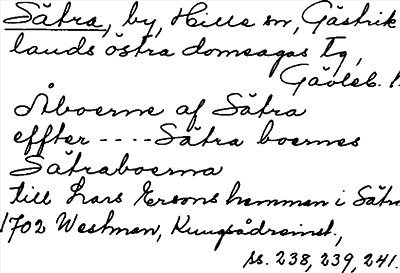 Sätra, by, Hille sn, Gästrik
lands östra domsagas tg,
Gävleb. l.
Åboerne af Sätra
effter ---- Sätra boernes
Sätraboerna
till Lars Ersons hemman i Sätr
1702 Westman, Kungsådreinst.,
ss. 238, 239, 241.